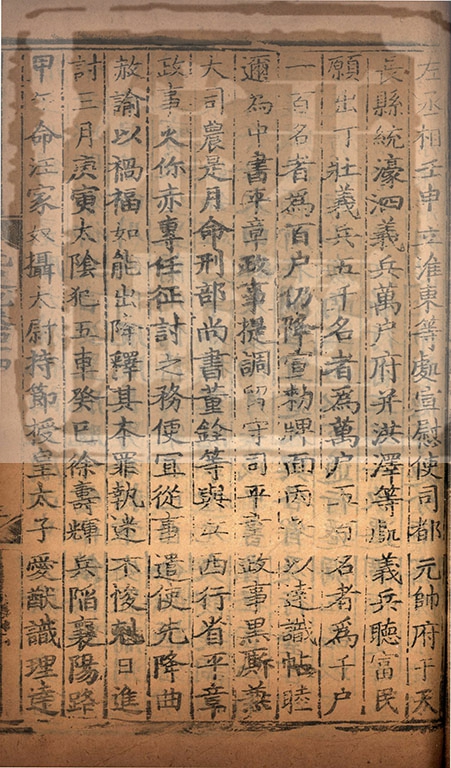 左丞相壬申立淮東等處宣慰使司都元帥府于天
長縣統濠泗義兵萬户府并洪澤等處義兵聽富民
願出丁壯義兵五千名者為萬户五百名者為千户
一百名者為百户仍降宣勑牌面丙 以達識帖睦
邇為中書平章政事提調留守司平章政事黑廝兼
大司農是月命刑部尚書董銓等與 西行省平章
政事火你赤專任征討之務便宜從事遣使先降曲
赦諭以禍福如能出降釋其本罪執迷不悛剋日進
討三月庚寅太陰犯五車癸巳徐壽輝兵陷襄陽路
甲午命汪家奴攝太尉持節授皇太子愛猷識理達